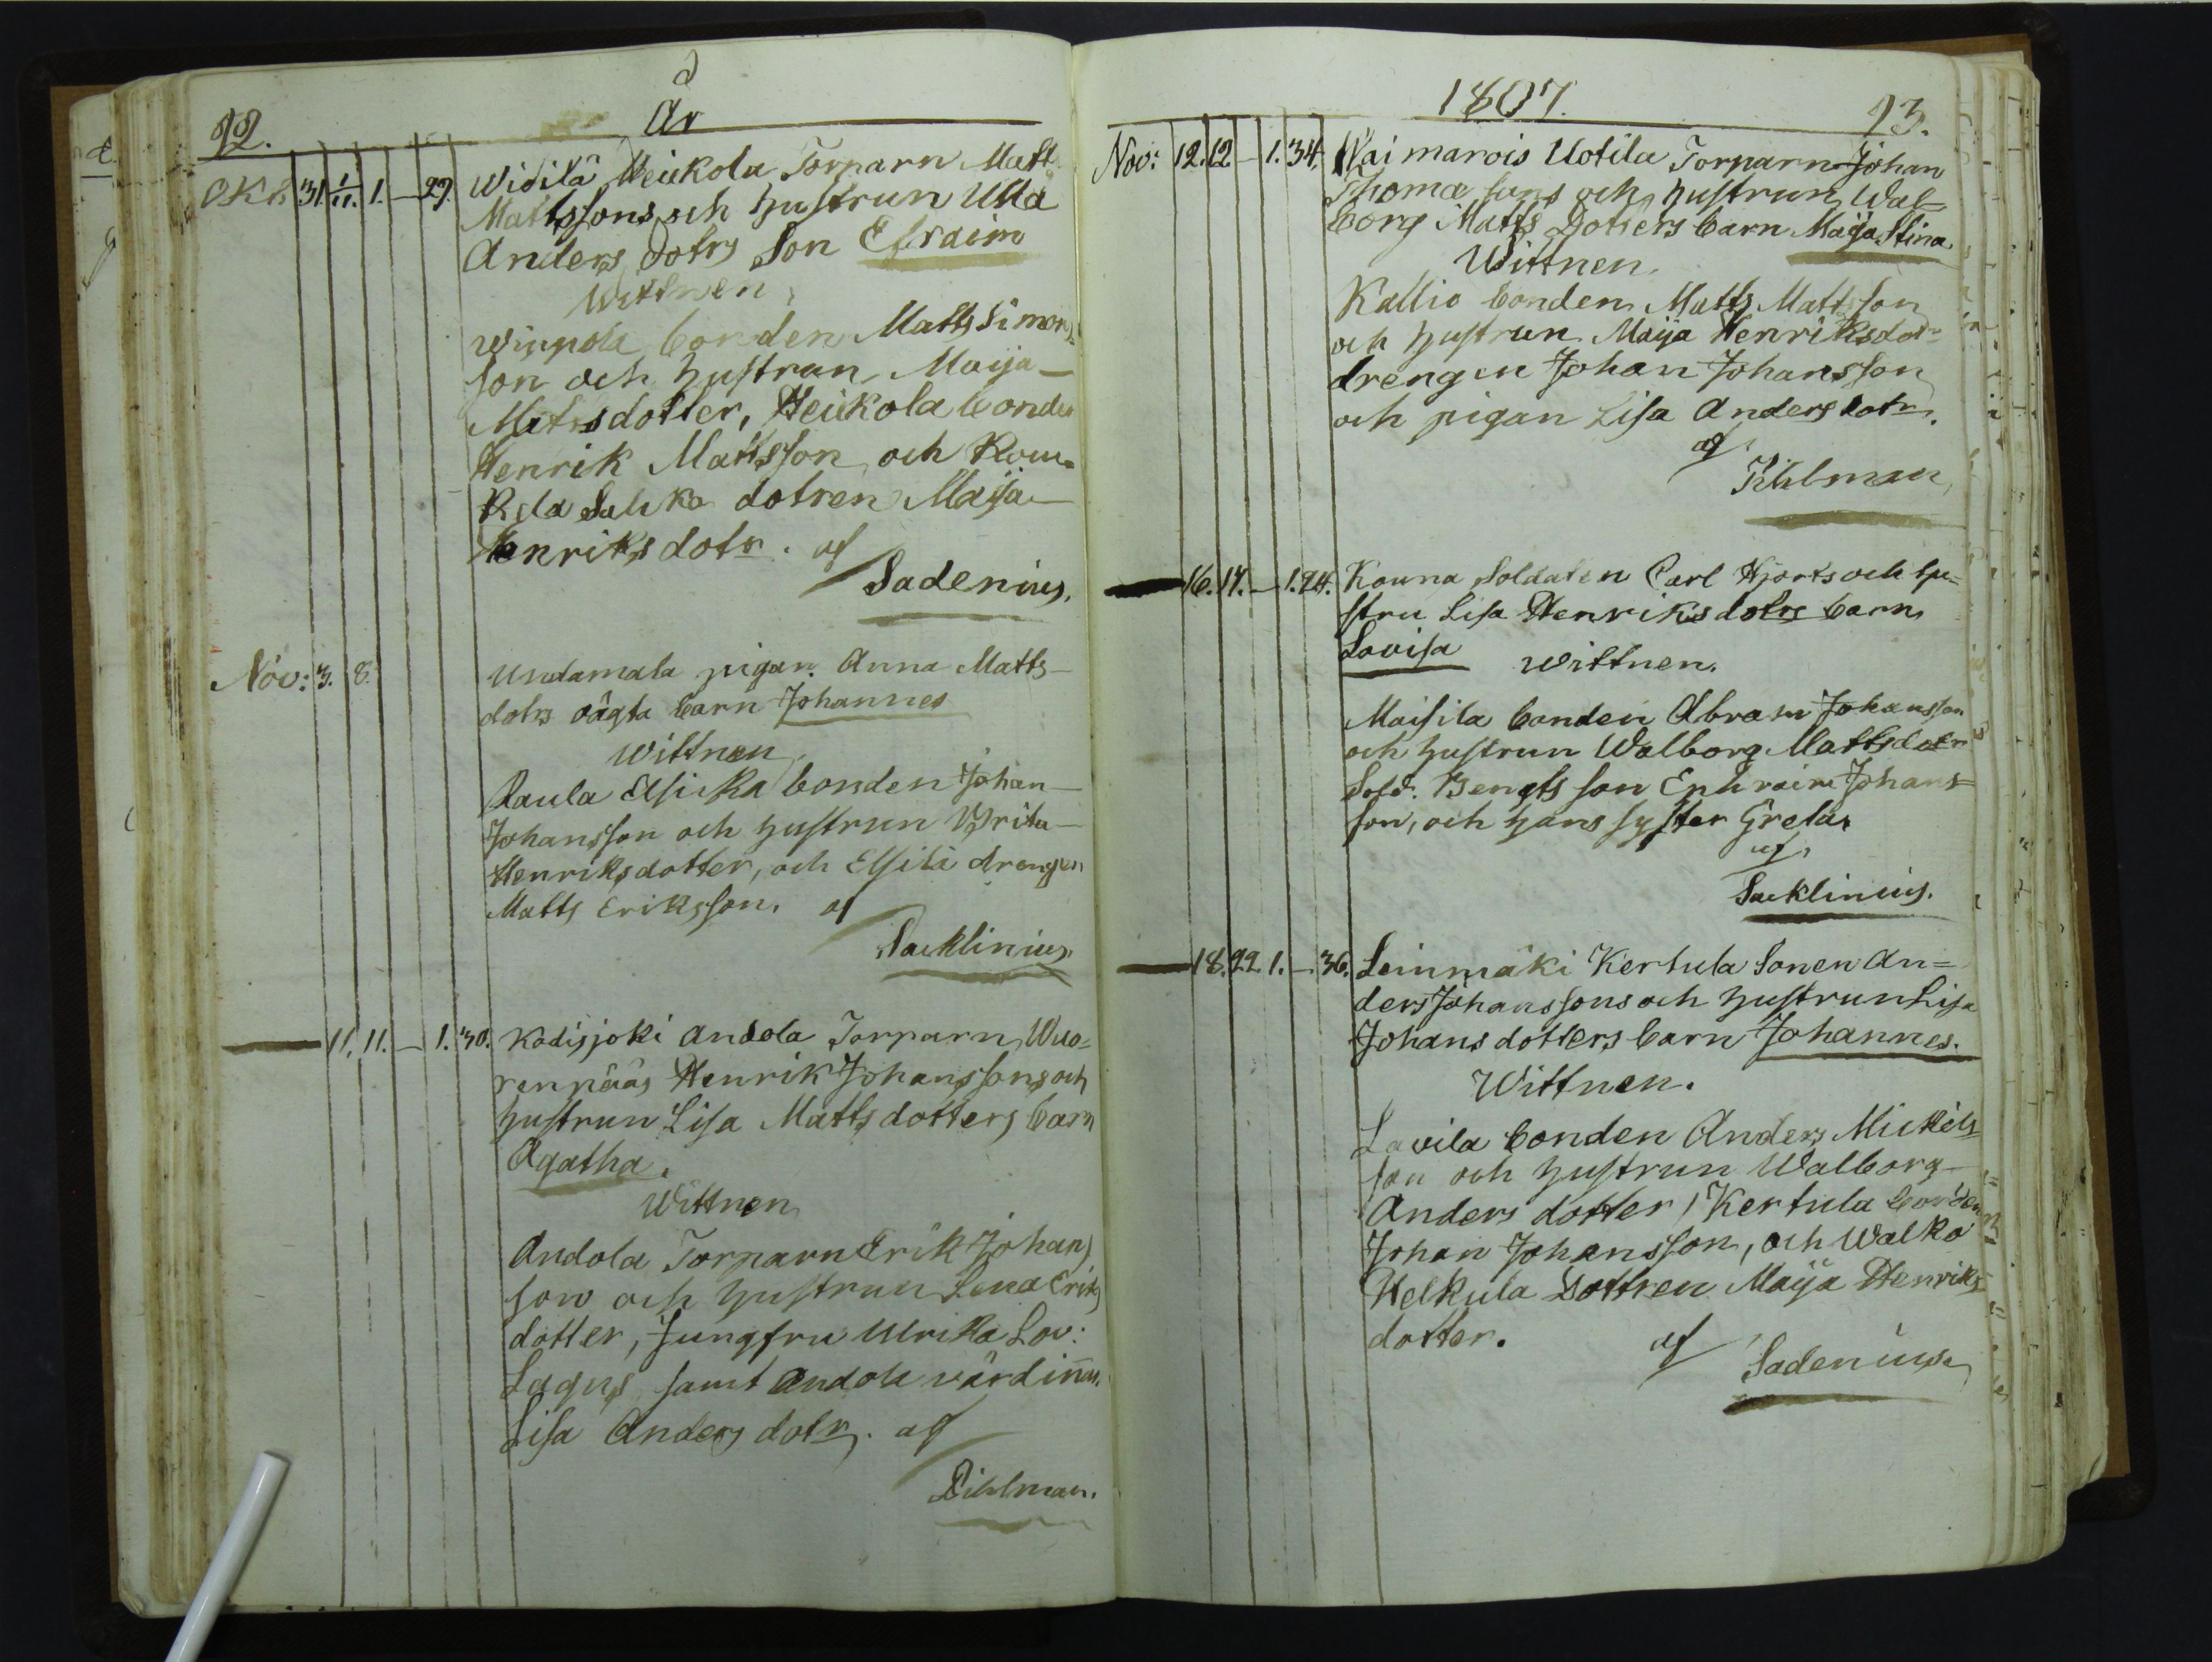 92.
År
Oktb 31. 1/11. 1. — 27. Widilä Heikola Torparn Matt
Mattssons och hustrun Ulla
Anders dotrs Son Efraim
Wittnen,
Wippola bonden Matts Simons
son och hustrun Maija
Matsdotter, Heikola bonden
Henrik Mattsson och Kou=
kela dotren Maija
Henriksdotr. af
Sadenius.
Nov: 3. 8. Undamala pigan Anna Matts
dotrs oägta barn Johannes
Wittnen
Raula Elsickä bonden Johan
Johansson och hustrun Brita
Henriksdotter, och drengen
Matts Eriksson. af
Sacklinius.
11. 11. — 1. 30. Kadisjoki Andola Torparn Wuo=
renpääs Henrik Johanssons och
hustrun Lisa Mattsdotters barn
Agatha.
Wittnen
Andola Torparn Erik Johans
son och hustrun Lena Eriks
dotter, Jungfru Ulrika Lov:
Lagus samt Andola värdinnan
Lisa Anders dotr. af
Pihlman.
1807.
93.
Nov: 12. 12 — 1. 34. Waimarois Uotila Torparn Johan
Thomæ sons och hustrun Wal=
borg Matts Dotters barn Maija Stina.
Wittnen.
Kallio bonden Matts Mattsson
och hustrun Maija Henriksdotr
drengen Johan Johansson
och pigan Lisa Andersdotr.
af
Pihlman
16. 17. — 1. 24. Kouna Soldaten Carl Hjorts och hu=
stru Lisa Henriksdotrs barn
Lovisa
Wittnen.
Maisila bonden Abram Johansson
och hustrun Walborg Mattsdotr
Sold. Bengts son Ephraim Johans=
son, och hans syster Greta.
af
Sacklinius.
18. 22. 1. — 36. Leinmäki Kertula Sonen An=
ders Johanssons och hustrun Lisa
Johans dotters barn Johannes.
Wittnen.
Lavila bonden Anders Mickels
son och hustrun Walborg
Anders dotter, Kertula bonden
Johan Johansson, och Walko
Helkula Dottren Maija Henriks
dotter. af
Sadenius